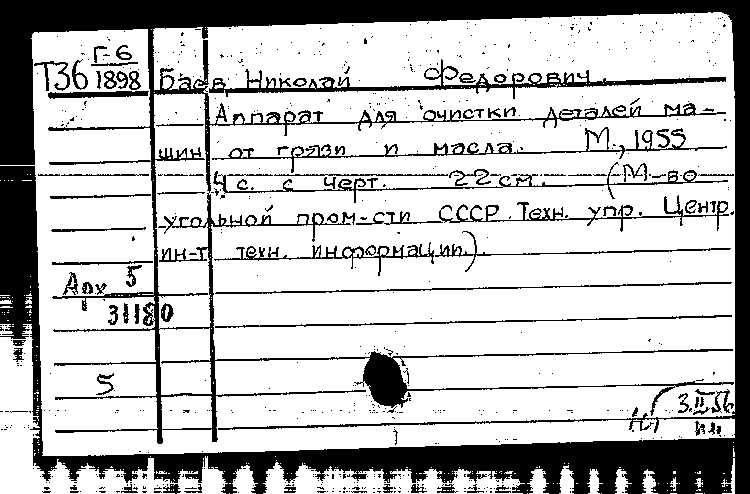 Г-6
Т36 1898 Баев, Николай Федорович.
Аппарат для очистки деталей ма-
шин от грязи и масла. М., 1955
4 с. с черт. 22 см. (М-во
угольной пром-сти СССР. Техн. упр. Центр.
ин-т техн. информации).
Арх. 5
31180
5
3.II.56